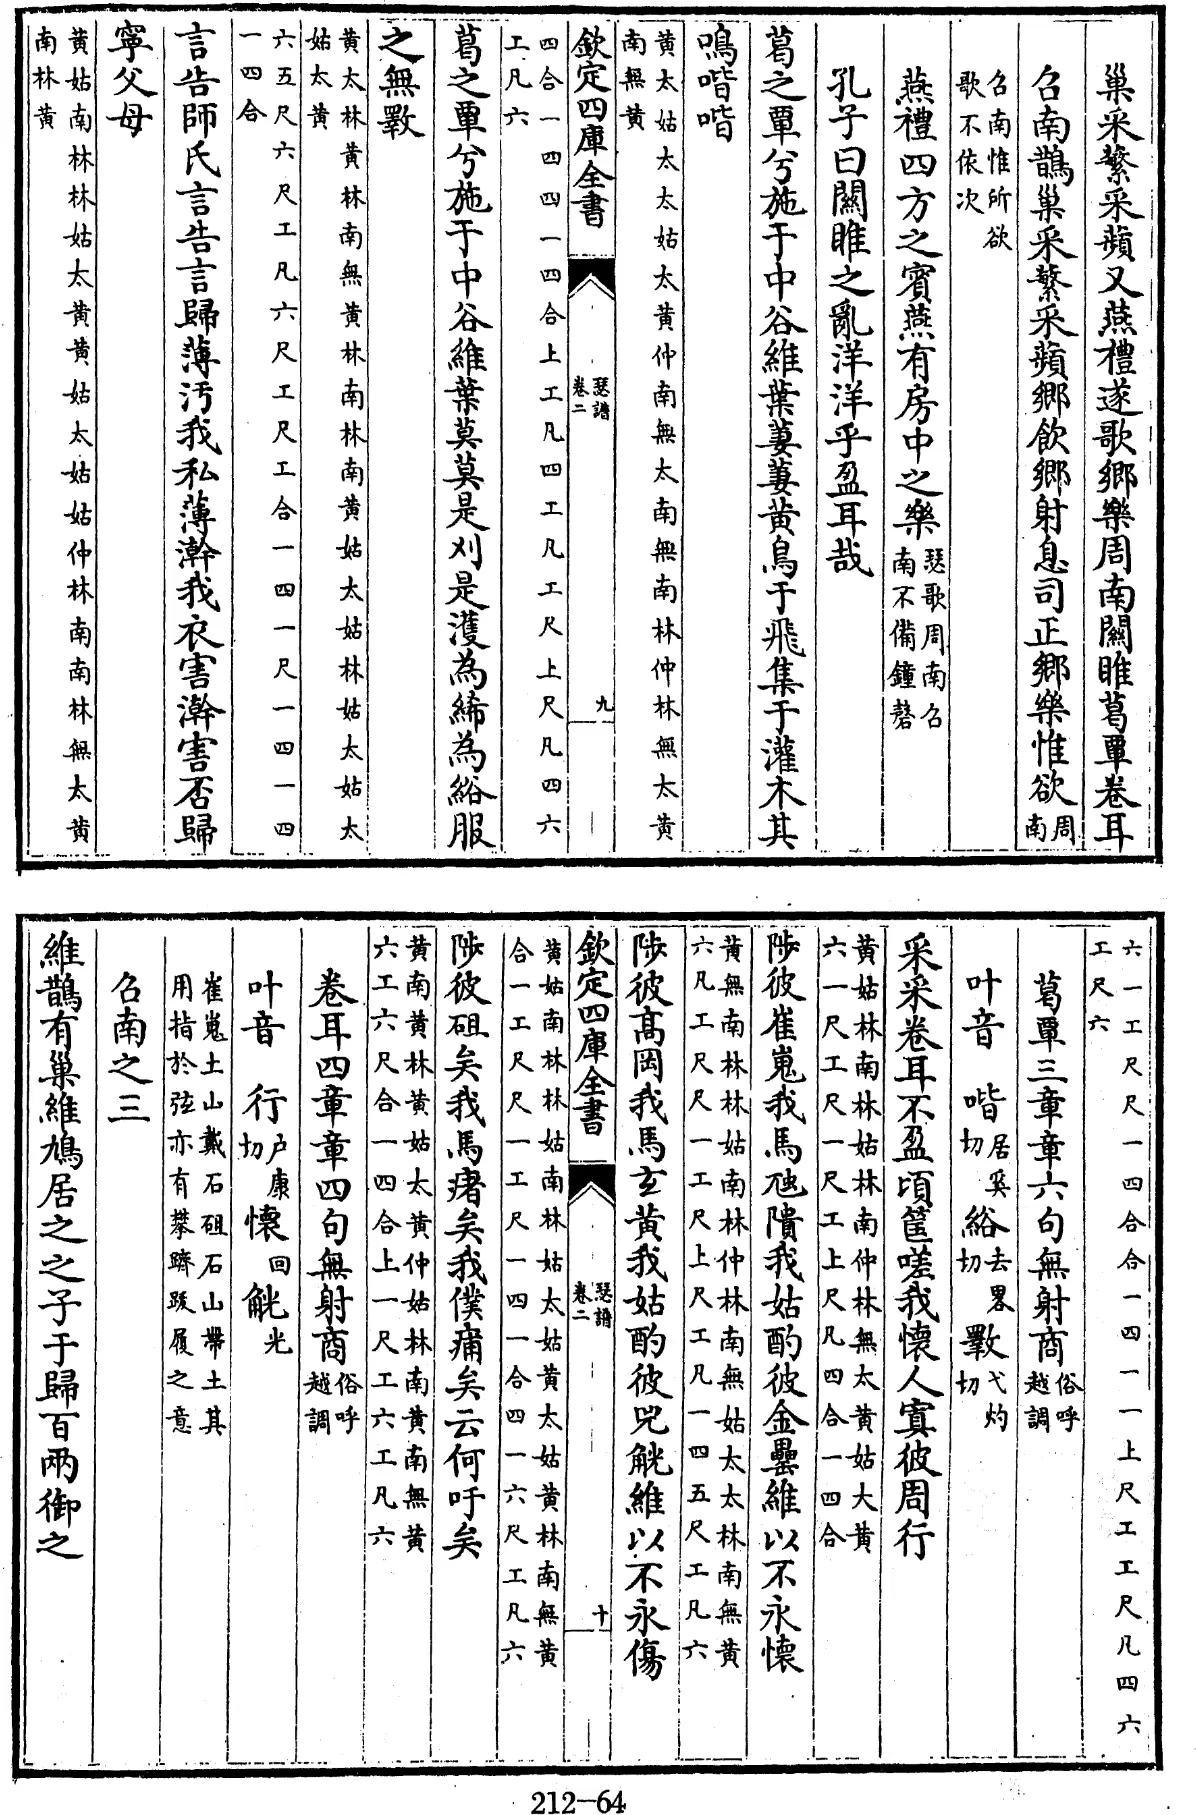 巢采蘩采蘋又燕禮遂歌鄉樂周南關雎葛覃卷耳
召南鵲巢采蘩采蘋鄉飲鄉射息司正鄉樂惟欲周南
召南惟所欲
歌不依次
燕禮四方之賓燕有房中之樂瑟歌周南召
南不備鐘磬
孔子曰關雎之亂洋洋乎盈耳哉
葛之覃兮施于中谷維葉萋萋黄鳥于飛集于灌木其
鳴喈喈
黄太姑太太姑太黄仲南無太南無南林仲林無太黄
南無黄
欽定四庫全書 瑟譜 卷二 九
四合一四四一四合上工凡四工凡工尺上尺凡四六
工凡六
葛之覃兮施于中谷維葉莫莫是刈是濩為絺為綌服
之無斁
黄太林黄林南無黄林南林南黄姑太姑林姑太姑太
姑太黄
六五尺六尺工凡六尺工尺工合一四一尺一四一四
一四合
言告師氏言告言歸薄污我私薄澣我衣害澣害否歸
寧父母
黄姑南林林姑太黄黄姑太姑姑仲林南南林無太黄
南林黄
六一工尺尺一四合合一四一一上尺工工尺凡四六
工尺六
葛覃三章章六句無射商俗呼越調
叶音 喈居奚切 綌去畧切 斁弋灼切
采采卷耳不盈頃筐嗟我懷人寘彼周行
黄姑林南林姑林南仲林無太黄姑大黄
六一尺工尺一尺工上尺凡四合一四合
陟彼崔嵬我馬虺隤我姑酌彼金罍維以不永懷
黄無南林林姑南林仲林南無姑太太林南無黄
六凡工尺尺一工尺上尺工凡一四五尺工凡六
陟彼高岡我馬玄黄我姑酌彼兕觥維以不永傷
欽定四庫全書 瑟譜 卷二 十
黄姑南林林姑南林姑太姑黄太姑黄林南無黄
合一工尺尺一工尺一四一合四一六尺工凡六
陟彼砠矣我馬瘏矣我僕痡矣云何吁矣
黄南黄林黄姑太黄仲姑林南黄南無黄
六工六尺合一四合上一尺工六工凡六
卷耳四章章四句無射商俗呼越調
叶音 行户康切 懷回 觥光
崔嵬土山戴石砠石山帶土其
用指於弦亦有攀躋跋履之意
召南之三
維鵲有巢維鳩居之之子于歸百兩御之
212-64